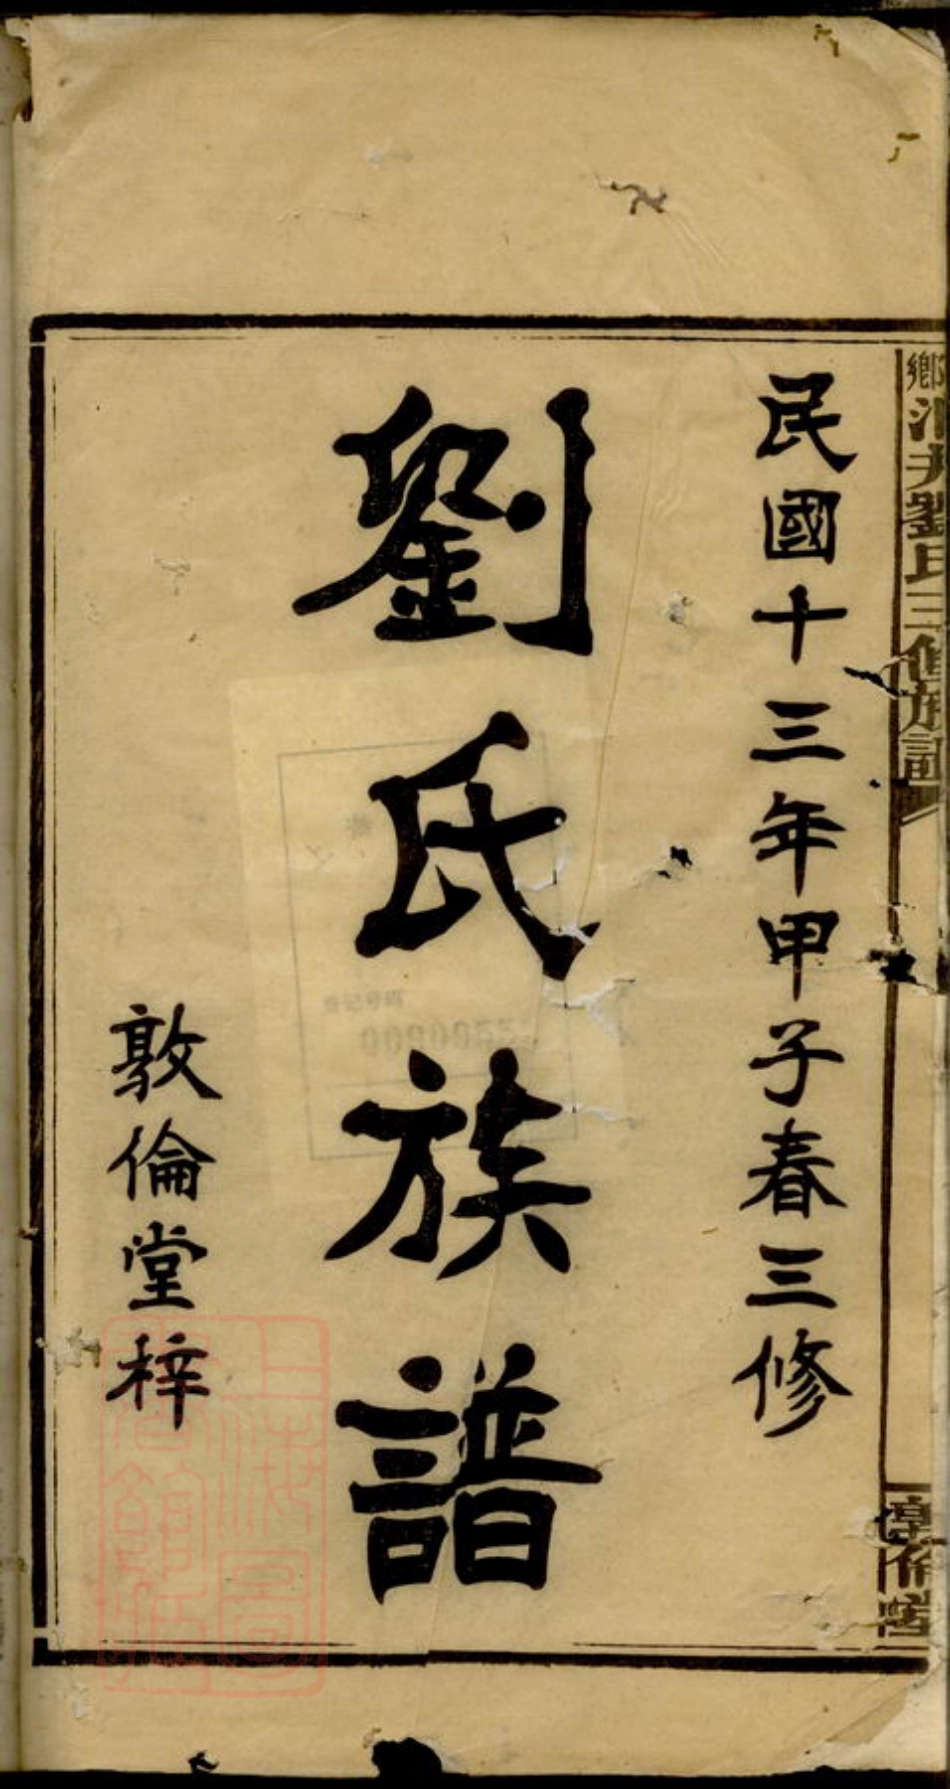 民國十三年甲子春三修
劉氏族譜
敦倫堂梓
劉氏三修族譜
敦倫堂
上海圖書館藏